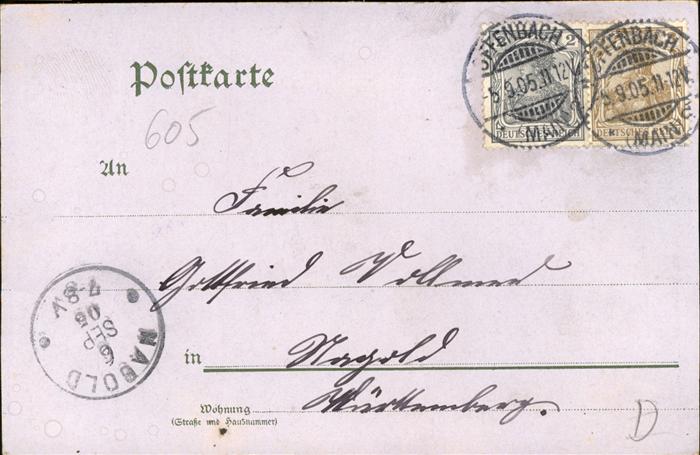 Postkarte
605
OFFENBACH
5.9.05.11-12V.
(MAIN)
2
DEUTSCHES REICH
OFFENBACH
5.9.05.11-12V.
(MAIN)
DEUTSCHES
An
Familie
Gottfried Vollmer
in Nagold
Württemberg.
Wohnung
(Straße und Hausnummer)
NAGOLD
SEP
05
7-8V
D